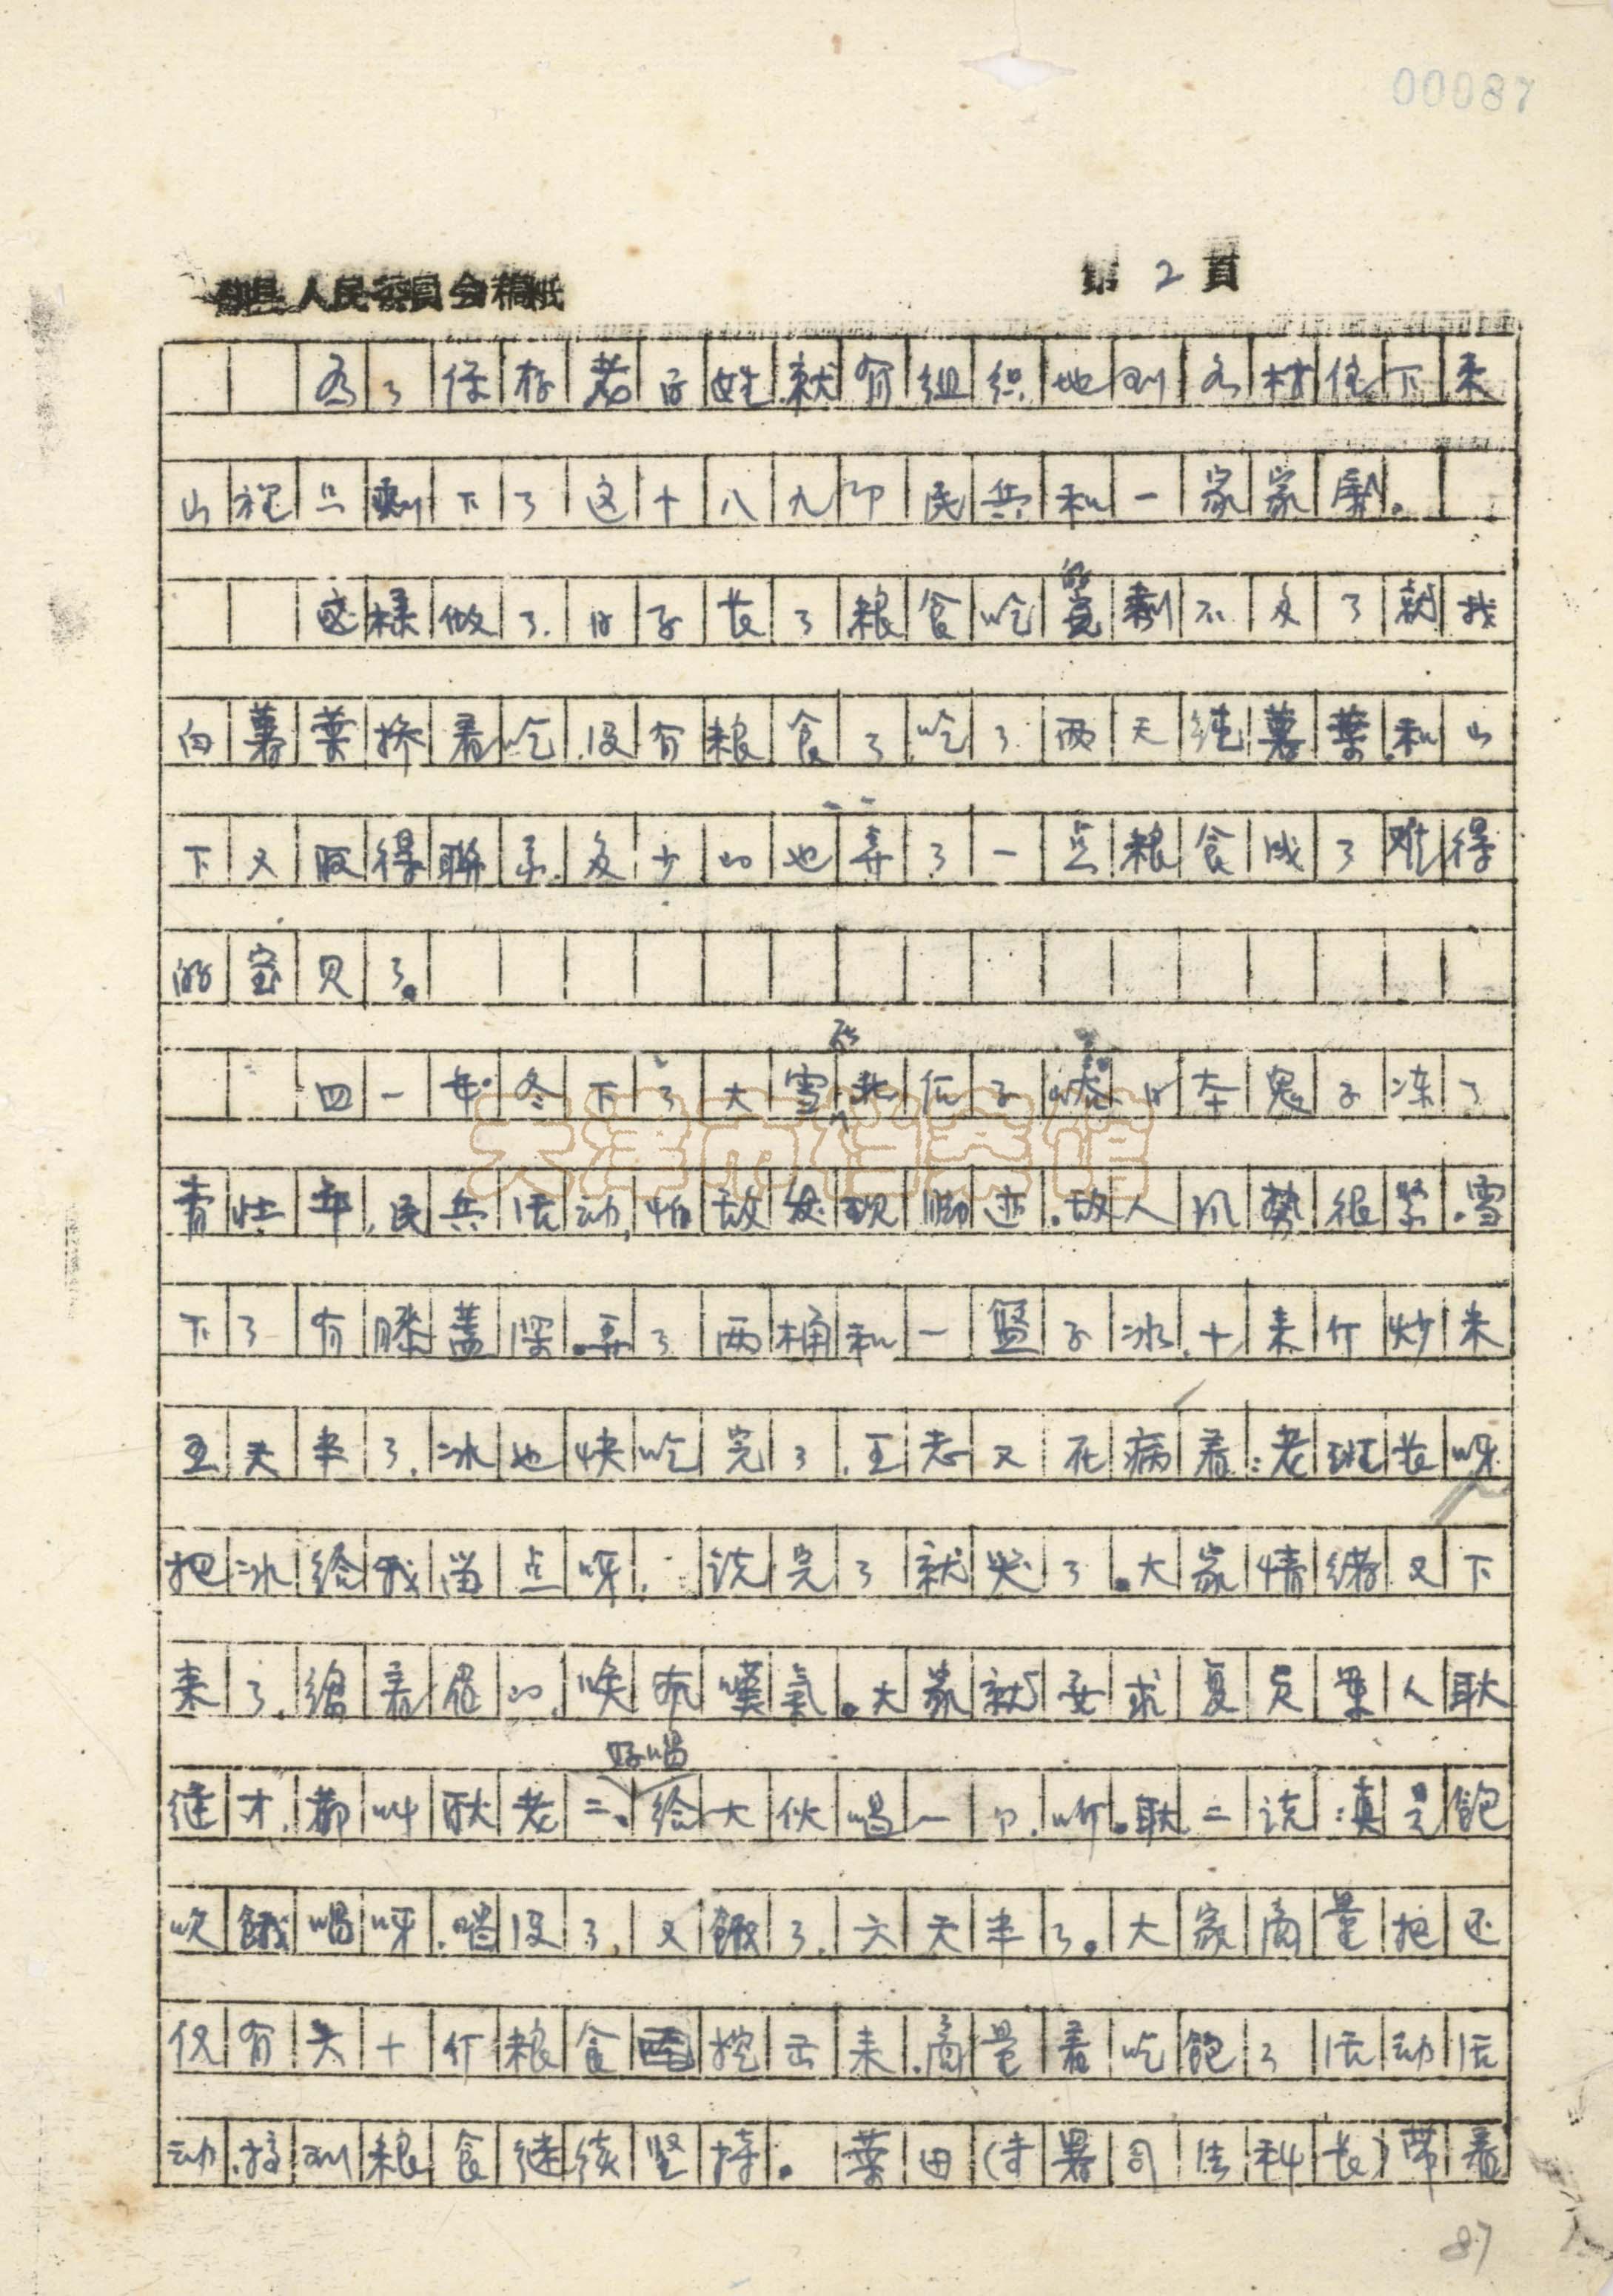 00087
县人民委員会稿紙 第2頁
为了保存老百姓.就有组织地到各村住下来
山裡只剩下了这十八九个民兵和一家家屬。
这樣做了.日子长了粮食吃的剩不多了就找
白薯葉掺着吃.没有粮食了.吃了两天纯薯葉.和山
下又取得聯系.多少的也弄了一点粮食成了难得
的宝贝了。
四一年冬下了大雪后北伍子峪日本鬼子冻了
青壮年.民兵活动,怕敌发现脚迹.敌人讯势很紧.雪
下了有膝蓋深.弄了两桶和一篮子冰.十来斤炒米
五天半了.冰也快吃完了.王志又在病着:老班长呀
把冰给我留点呀.说完了就哭了.大家情绪又下
来了.绺着眉的.唉声嘆氣.大家就要求复员軍人耿
继才.都叫耿老二.好唱给大伙唱一个.听.耿二说:真是飽
吹餓唱呀.唱没了,又餓了.六天半了.大家商量把还
仅有六十斤粮食挖出来.商量着吃飽了活动活
动.接到粮食继续坚持.葉田(专署司法科长)带着
87
天津市档案馆